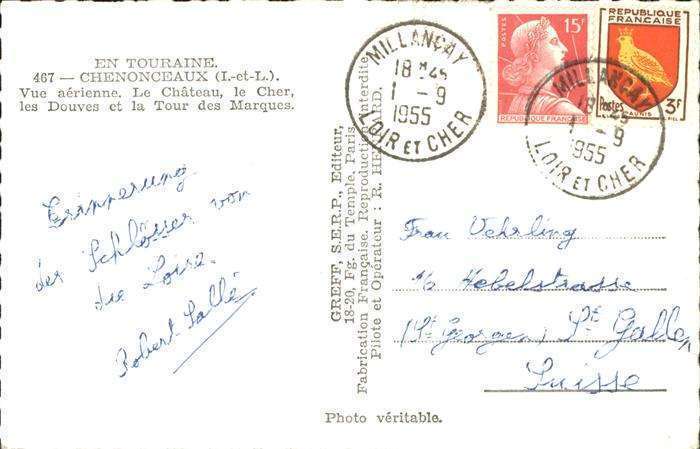 EN TOURAINE.
467 — CHENONCEAUX (I.-et-L.).
Vue aérienne. Le Château, le Cher,
les Douves et la Tour des Marques.
Erinnerung
der Schlösser von
die Loire.
Robert Sallé
GREFF, S.E.R.P., Editeur,
18-20, Fg. du Temple, Paris.
Fabrication Française. Reproduction Interdite
Pilote et Opérateur : R. HENRARD.
Photo véritable.
MILLANÇAY
18 H 45
1 - 9
1955
LOIR ET CHER
POSTES
15F
REPUBLIQUE FRANÇAISE
REPUBLIQUE
FRANÇAISE
Postes
3F
AUNIS
MILLANÇAY
18 45
1 - 9
1955
LOIR ET CHER
Frau Vehrling
Hebelstrasse
(St Georgen) St Gallen
Suisse